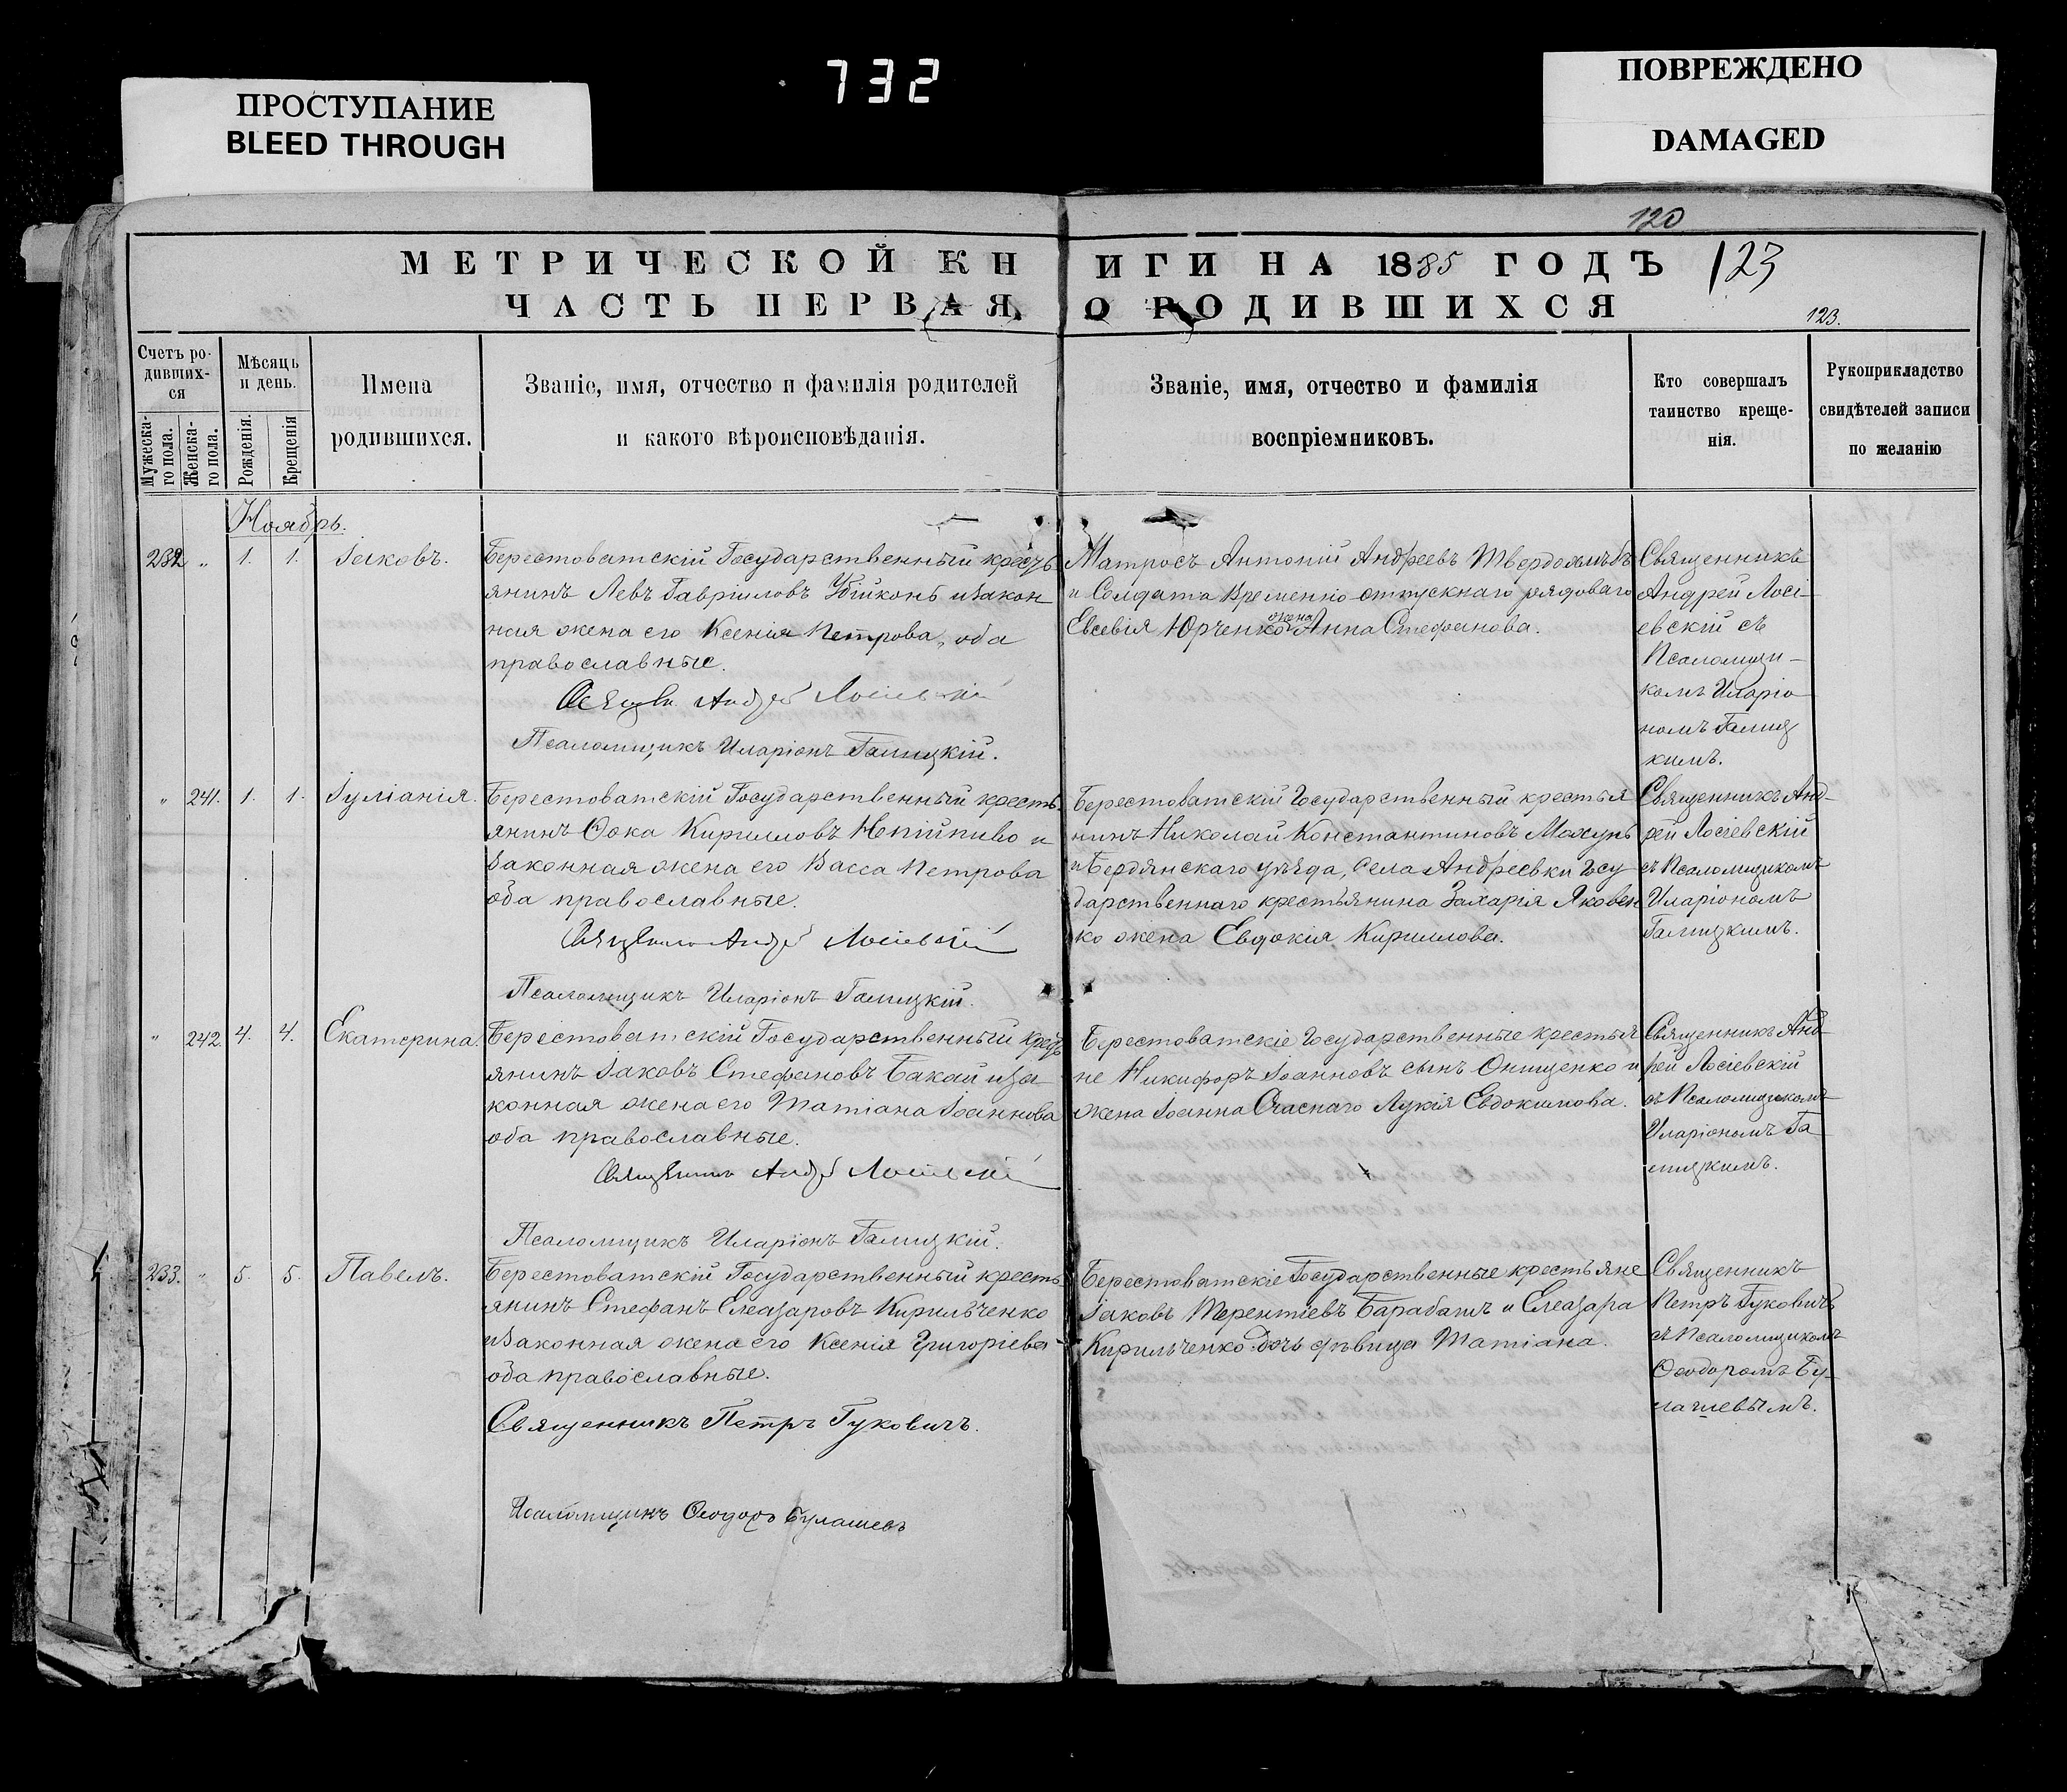 732
ПРОСТУПАНИЕ
BLEED THROUGH
ПОВРЕЖДЕНО
DAMAGED
120
МЕТРИЧЕСКОЙ КНИГИ НА 1885 ГОДЪ 123
ЧАСТЬ ПЕРВАЯ, О РОДИВШИХСЯ
123.
Счетъ ро-
дивших-
ся
Мужеска-
го пола.
Женска-
го пола.
Мѣсяць
и день.
Рожденія.
Крещенія
Имена
родившихся.
Званіе, имя, отчество и фамилія родителей
и какого вѣроисповѣданія.
Званіе, имя, отчество и фамилія
воспріемниковъ.
Кто совершалъ
таинство креще-
нія.
Рукоприкладство
свидѣтелей записи
по желанію
Ноябрь.
232 „ 1. 1. Іаковъ.
Берестоватскій Государственный кресть
янинъ Левъ Гавріиловъ Убійконь и закон
ная жена его Ксенія Петрова, оба
православные.
Андрей Лосіевскій
Псаломщикъ Иларіонъ Галицкій.
Матросъ Антоній Андреевъ
и Солдата Временно отпускнаго рядоваго
жена
Евсевія Юрченко Анна Стефанова.
Священникъ
Андрей Лосі-
евскій съ
Псаломщи-
комъ Иларіо
номъ Галиц
кимъ.
„ 241. 1. 1. Іуліанія.
Берестоватскій Государственный кресть
янинъ Ѳока Кирилловъ Непійпиво и
законная жена его Васса Петрова
оба православные.
Священникъ Андрей Лосіевскій
Псаломщикъ Иларіонъ Галицкій.
Берестоватскій Государственный крестья
нинъ Николай Константиновъ Махунь
и Бердянскаго уѣзда, села Андреевки Госу
дарственнаго крестьянина Захарія Яковен
ко жена Евдокія Кириллова.
Священникъ Анд-
рей Лосіевскій
съ Псаломщикомъ
Иларіономъ
Галицкимъ.
„ 242. 4. 4. Екатерина.
Берестоватскій Государственный кресть
янинъ Іаковъ Стефановъ Бакай и за-
конная жена его Татіана Іоаннова
оба православные.
Священникъ Андрей Лосіевскій
Псаломщикъ Иларіонъ Галицкій.
Берестоватскіе Государственные крестья
не Никифоръ Іоанновъ сынъ Онищенко и
жена Іоанна Счаснаго Лукія Евдокимова.
Священникъ Анд-
рей Лосіевскій
съ Псаломщикомъ
Иларіономъ Га-
лицкимъ.
233. „ 5. 5. Павелъ.
Берестоватскій Государственный кресть
янинъ Стефанъ Елеазаровъ Кирильченко
и законная жена его Ксенія Григоріева
оба православные.
Священникъ Петръ Гуковичъ.
Псаломщикъ Ѳеодоръ Булашевъ
Берестоватскіе Государственные крестьяне
Іаковъ Терентіевъ Барабашъ и Елеазара
Кирильченко дочь дѣвица Татіана.
Священникъ
Петръ Гуковичъ
съ Псаломщикомъ
Ѳеодоромъ Бу-
лашевымъ.